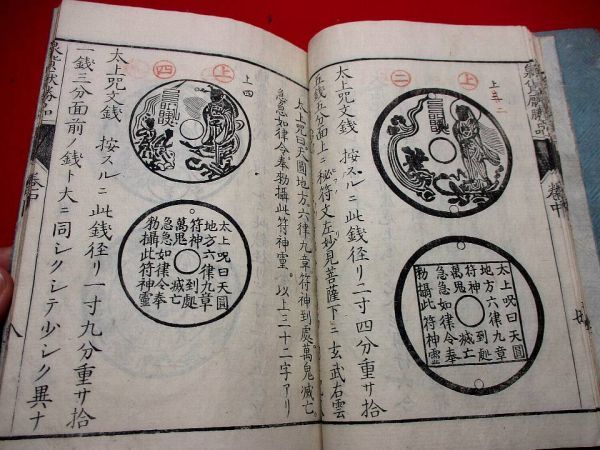 上
二
上三二
太上咒曰天圓
地方六律九章
符神到處
萬鬼滅亡
急急如律令奉
勅攝此符神靈
太上咒文錢 按スルニ此銭径リ二寸四分重サ拾
五銭五分面上ニ秘符文左妙見菩薩下ニ玄武右雲
太上咒曰天圓地方六律九章符神到處萬鬼滅亡
急急如律令奉勅攝此符神靈以上三十二字アリ
上
四
上四
太上咒曰天圓
地方六律九章
符神到處
萬鬼滅亡
急急如律令奉
勅攝此符神靈
太上咒文銭 按スルニ此銭径リ一寸九分重サ拾
一銭三分面前ノ銭ト大ニ同シクシテ少シク異ナ
卷中
卷中
八